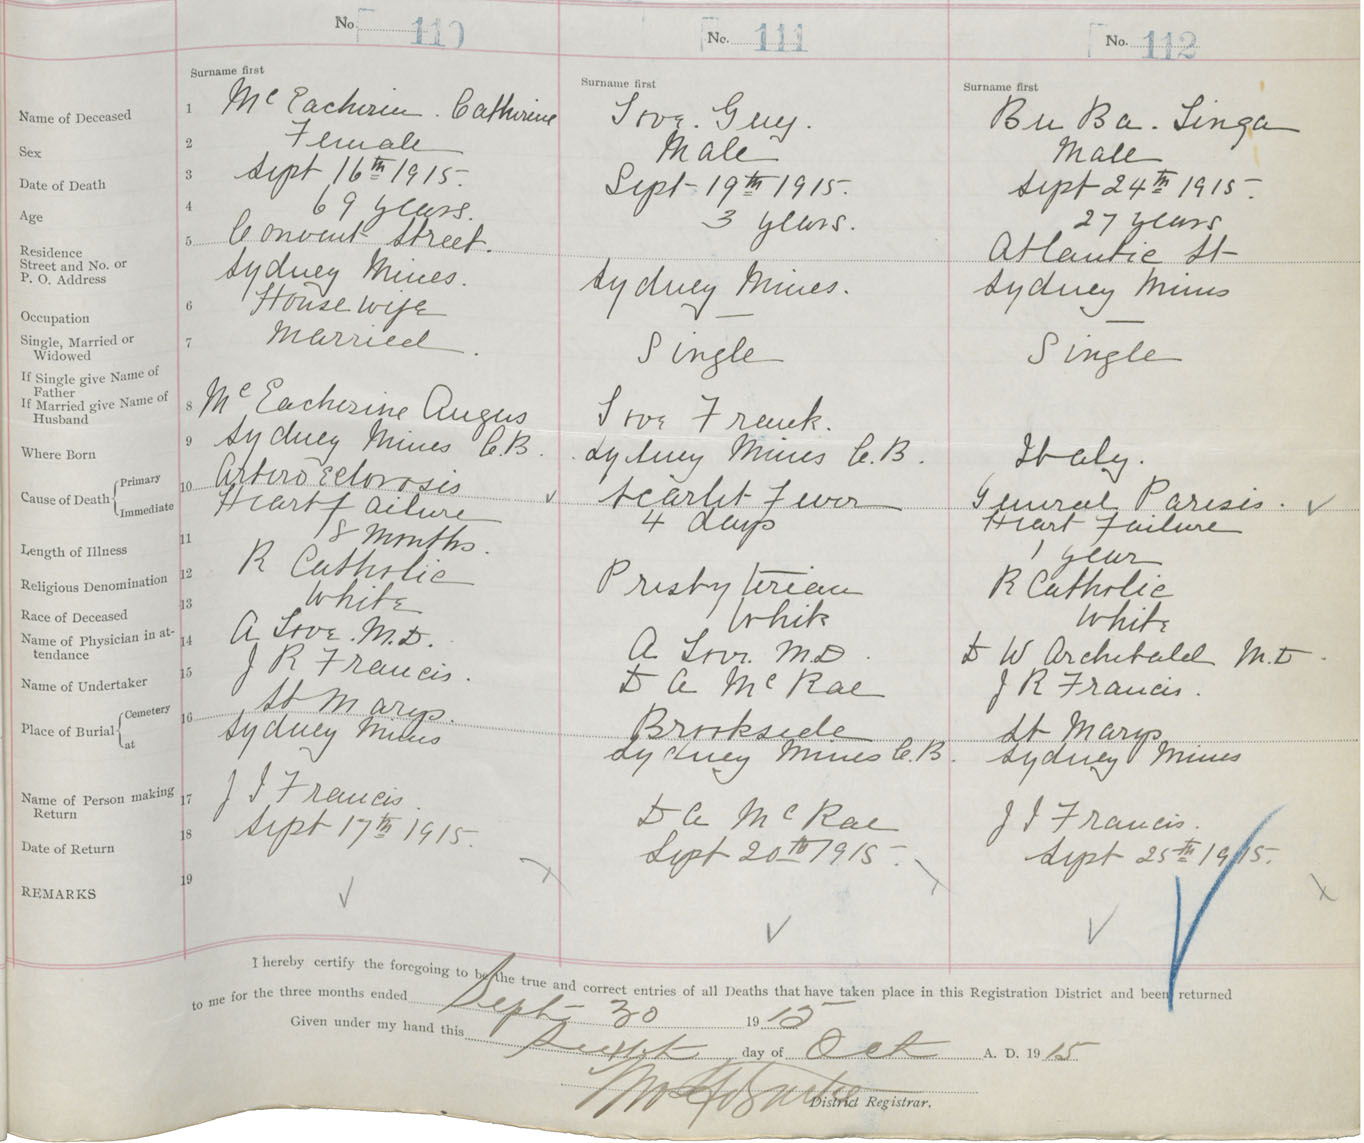 No. 110
No. 111
No. 112
Surname first
Surname first
Surname first
Name of Deceased 1 McEacherin. Catherine
Love. Guy.
Bu Ba. Linga
Sex 2 Female
Male
Male
Date of Death 3 Sept 16th 1915.
Sept 19th 1915.
Sept 24th 1915.
Age 4 69 years.
3 years.
27 years
Residence
Street and No. or
P. O. Address
5 Convent Street.
Sydney Mines.
Sydney Mines.
Atlantic St
Sydney Mines
Occupation 6 House wife
—
—
Single, Married or
Widowed
7 Married.
Single
Single
If Single give Name of
Father
If Married give Name of
Husband
8 McEacherine Angus
Love Frank.
Where Born 9 Sydney Mines C.B.
Sydney Mines C.B.
Italy.
Cause of Death Primary
Immediate
10 Arterio Sclorosis
Heart failure
Scarlet Fever
General Paresis.
Heart Failure
Length of Illness 11 18 Months.
4 days
1 year
Religious Denomination 12 R Catholic
Presbyterian
R Catholic
Race of Deceased 13 White
White
White
Name of Physician in at-
tendance
14 A Love. M.D.
A Love. M.D.
D W Archibald M.D.
Name of Undertaker 15 J R Francis.
D A McRae
J R Francis.
Place of Burial Cemetery
at
16 St Marys.
Sydney Mines
Brookside
Sydney Mines C.B.
St Marys
Sydney Mines
Name of Person making
Return
17 J I Francis.
D A McRae
J I Francis.
Date of Return 18 Sept 17th 1915.
Sept 20th 1915.
Sept 25th 1915.
REMARKS 19
I hereby certify the foregoing to be the true and correct entries of all Deaths that have taken place in this Registration District and been returned
to me for the three months ended Sept 30 1915
Given under my hand this day of Oct A. D. 1915
District Registrar.